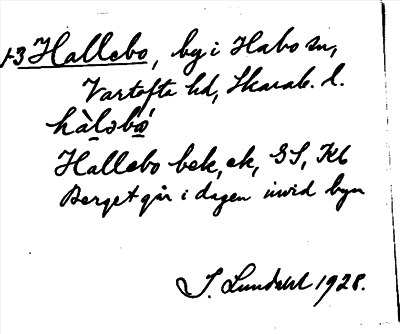 1-3 Hallebo, by i Habo sn,
Vartofta hd, Skarab. l.
hàləbo̤´
Hallebo bek, ek, GS, Kb
Berget går i dagen invid byn
S. Lundahl 1928.